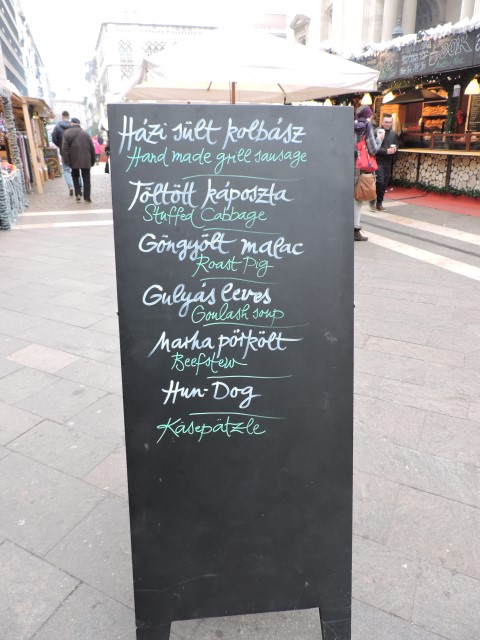 Házi sült kolbász
Hand made grill sausage
Töltött káposzta
Stuffed Cabbage
Göngyölt malac
Roast Pig
Gulyás leves
Goulash soup
Marha pörkölt
Beefstew
Hun-Dog
Käsepätzle